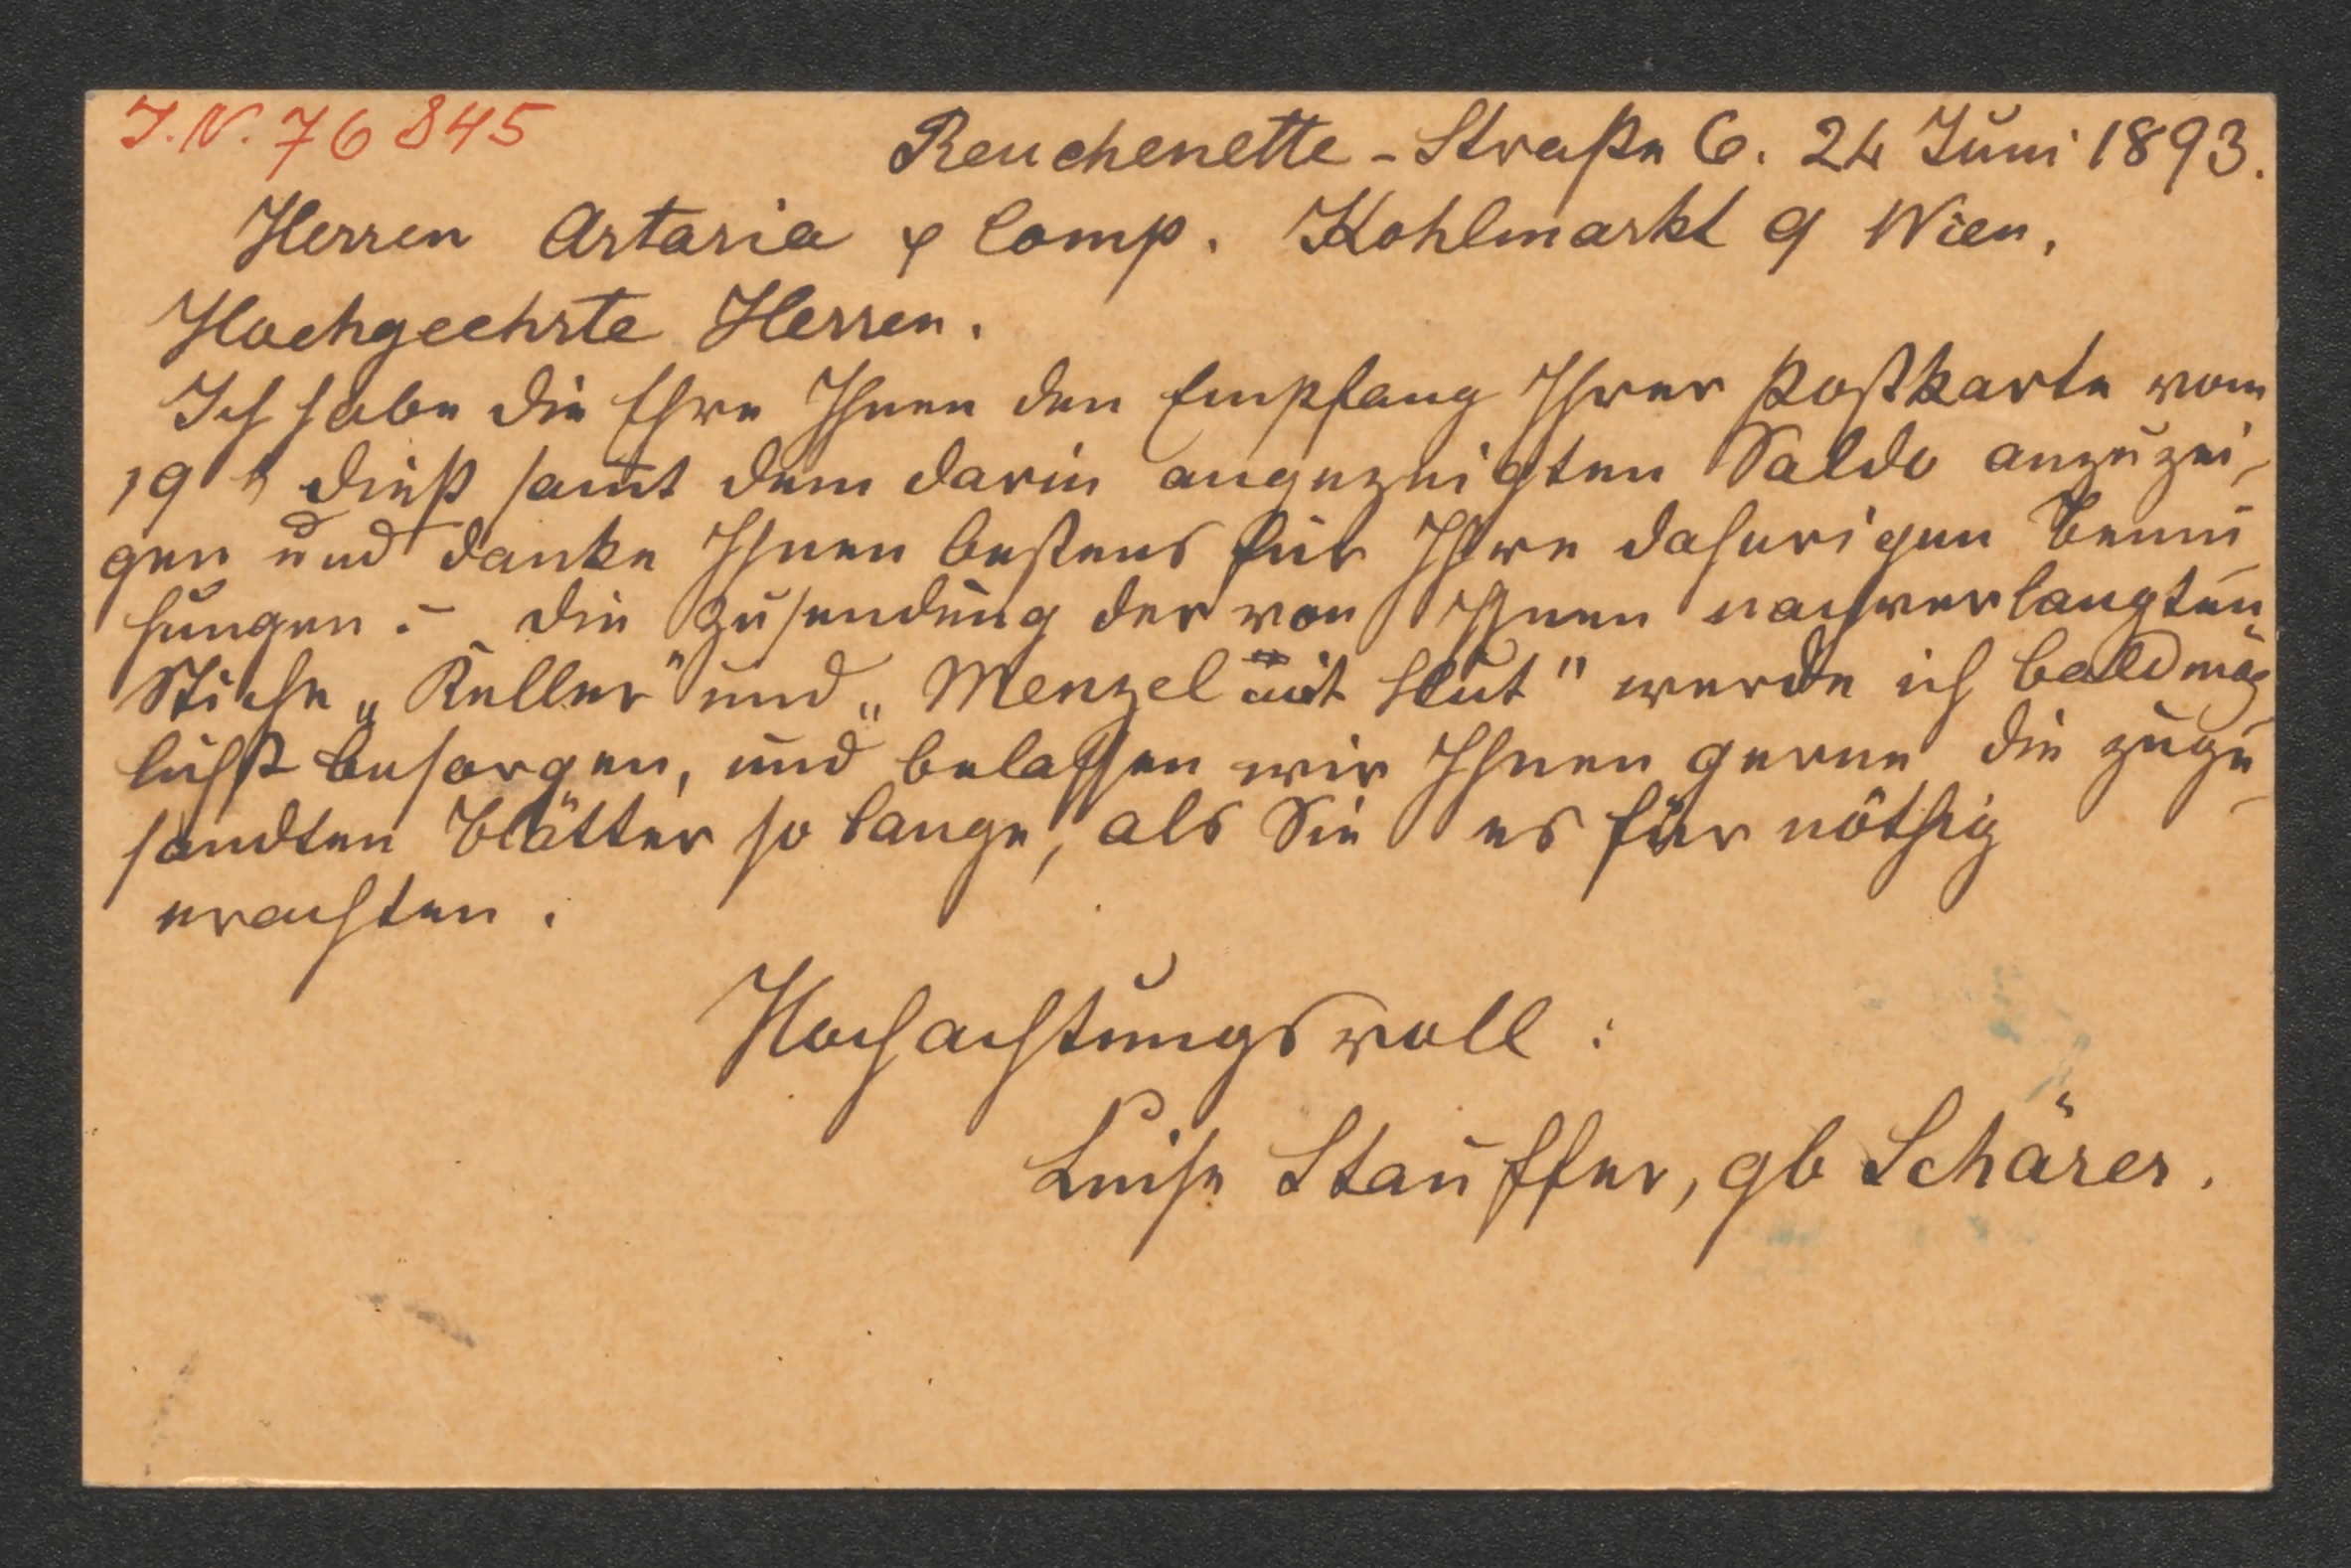 I.N. 76845
Reuchenette-Straße 6. 24 Juni 1893.
Herren Artaria & Comp. Kohlmarkt 9 Wien.
Hochgeehrte Herren.
Ich habe die Ehre Ihnen den Empfang Ihrer Postkarte vom
19 dieß sam̅t dem darin angezeigten Saldo anzuzei-
gen und danke Ihnen bestens für Ihre daherigen Bemü
hungen. – Die Zusendung der von Ihnen nachverlangten
Stiche „Keller" und „Menzel mit Hut" werde ich baldmög
lichst besorgen, und belassen wir Ihnen gerne die zuge-
sandten Blätter so lange, als Sie es für nöthig
erachten.
Hochachtungsvoll:
Luise Stauffer, gb Schärer.